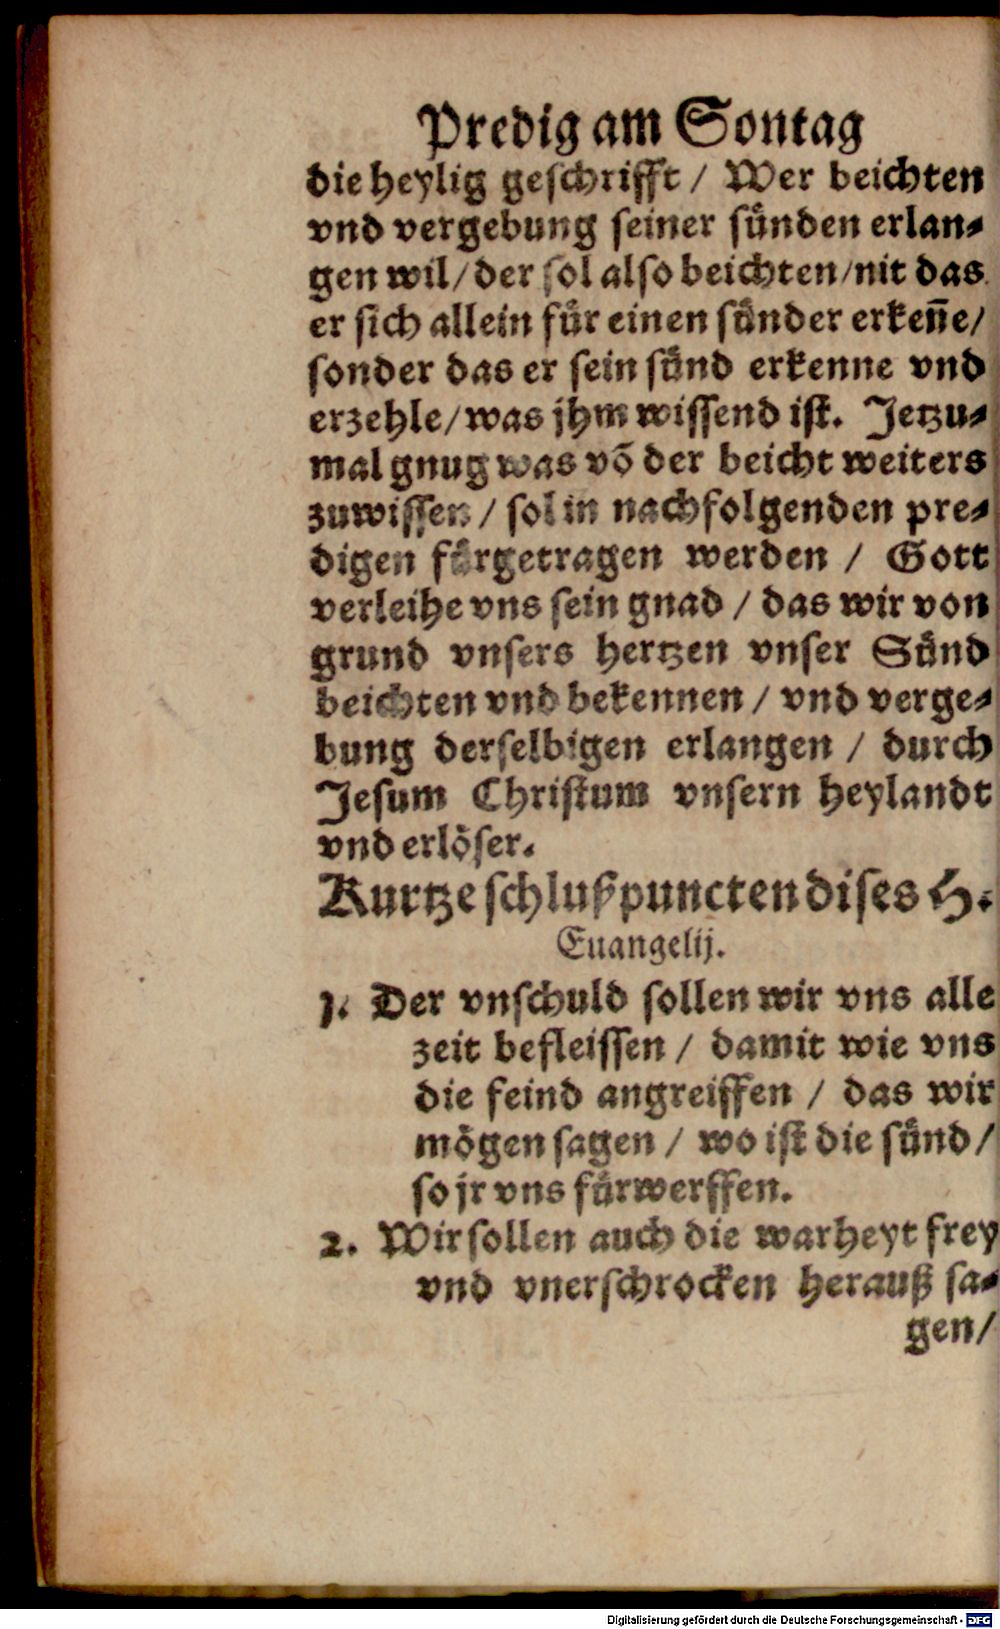 Predig am Sontag
die heylig geschrifft / Wer beichten
vnd vergebung seiner sünden erlan⸗
gen wil / der sol also beichten / nit das
er sich allein für einen sünder erkeñe /
sonder das er sein sünd erkenne vnd
erzehle / was jhm wissend ist. Jetzu⸗
mal gnug was võ der beicht weiters
zuwissen / sol in nachfolgenden pre⸗
digen fürgetragen werden / Gott
verleihe vns sein gnad / das wir von
grund vnsers hertzen vnser Sünd
beichten vnd bekennen / vnd verge⸗
bung derselbigen erlangen / durch
Jesum Christum vnsern heylandt
vnd erlöser.
Kurtze schlußpuncten dises H.
Euangelij.
1. Der vnschuld sollen wir vns alle
zeit befleissen / damit wie vns
die feind angreiffen / das wir
mögen sagen / wo ist die sünd /
so jr vns fürwerffen.
2. Wir sollen auch die warheyt frey
vnd vnerschrocken herauß sa⸗
gen /
Digitalisierung gefördert durch die Deutsche Forschungsgemeinschaft - DFG